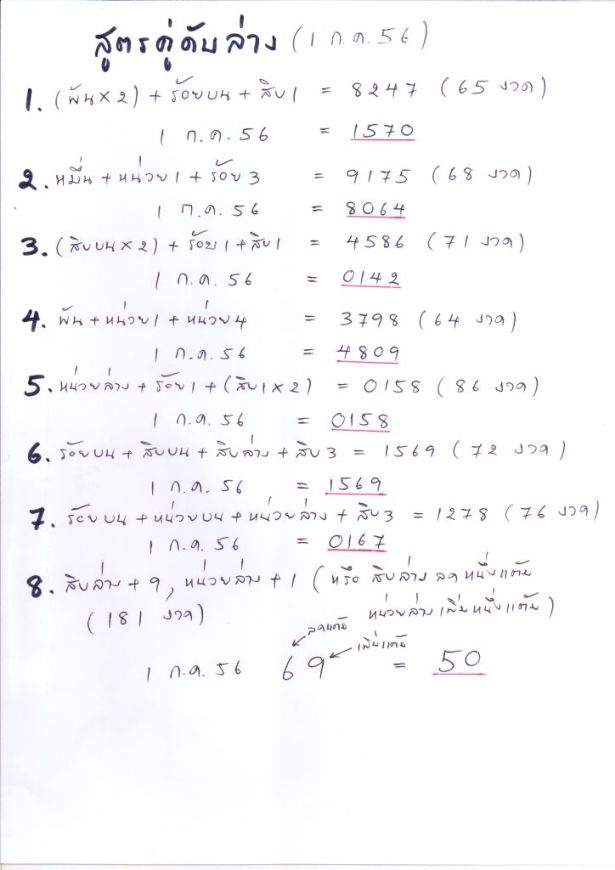 สูตรคู่ดับล่าง (1 ก.ค. 56)
1. (พัน x 2) + ร้อยบน + สิบ 1 = 8247 (65 งวด)
1 ก.ค. 56 = 1570
2. หมื่น + หน่วย 1 + ร้อย 3 = 9175 (68 งวด)
1 ก.ค. 56 = 8064
3. (สิบบน x 2) + ร้อย 1 + สิบ 1 = 4586 (71 งวด)
1 ก.ค. 56 = 0142
4. พัน + หน่วย 1 + หน่วย 4 = 3798 (64 งวด)
1 ก.ค. 56 = 4809
5. หน่วยล่าง + ร้อย 1 + (สิบ 1 x 2) = 0158 (86 งวด)
1 ก.ค. 56 = 0158
6. ร้อยบน + สิบบน + สิบล่าง + สิบ 3 = 1569 (72 งวด)
1 ก.ค. 56 = 1569
7. ร้อยบน + หน่วยบน + หน่วยล่าง + สิบ 3 = 1278 (76 งวด)
1 ก.ค. 56 = 0167
8. สิบล่าง + 9, หน่วยล่าง + 1 (หรือ สิบล่าง ลดหนึ่งแต้ม
(181 งวด) หน่วยล่าง เพิ่มหนึ่งแต้ม)
ลดแต้ม เพิ่มแต้ม
1 ก.ค. 56 69 = 50